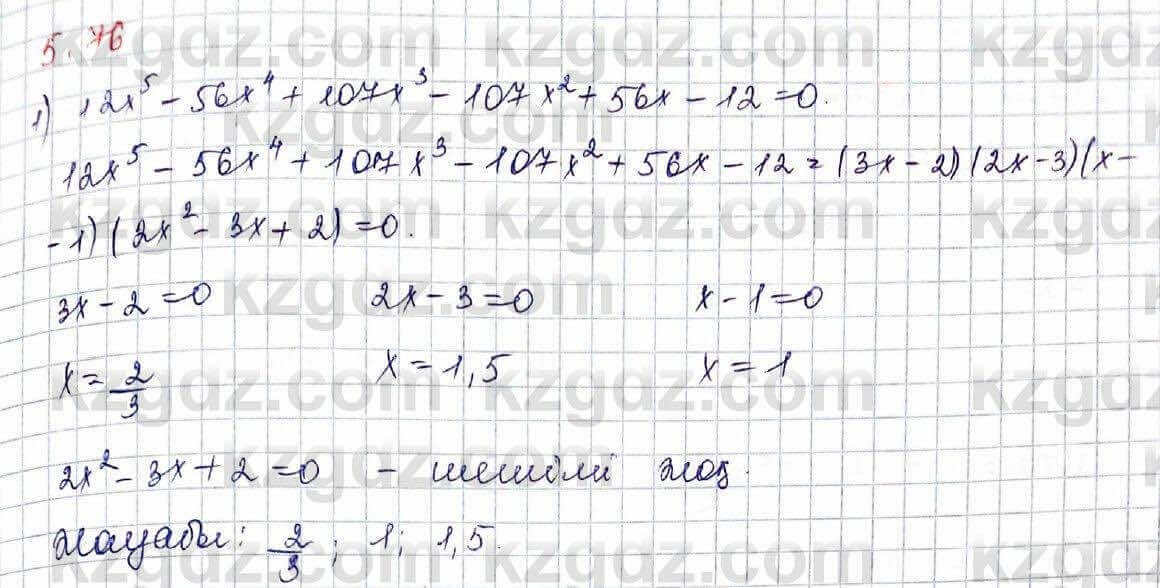 5.76
1) 12x⁵ - 56x⁴ + 107x³ - 107x² + 56x - 12 = 0.
12x⁵ - 56x⁴ + 107x³ - 107x² + 56x - 12 = (3x - 2)(2x - 3)(x -
- 1)(2x² - 3x + 2) = 0.
3x - 2 = 0 2x - 3 = 0 x - 1 = 0
x = 2/3 x = 1,5 x = 1
2x² - 3x + 2 = 0 - шешімі жоқ.
Жауабы: 2/3; 1; 1,5.
kzgdz.com